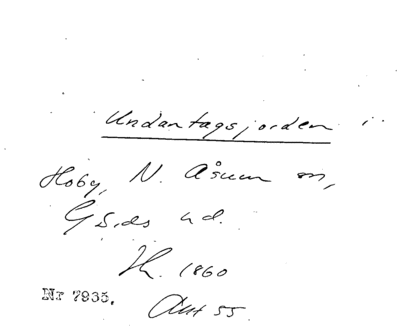 Undantagsjorden i
Hoby, N. Åsum sn,
Gärds hd.
Jh. 1860
Nr 7935. Akt 55